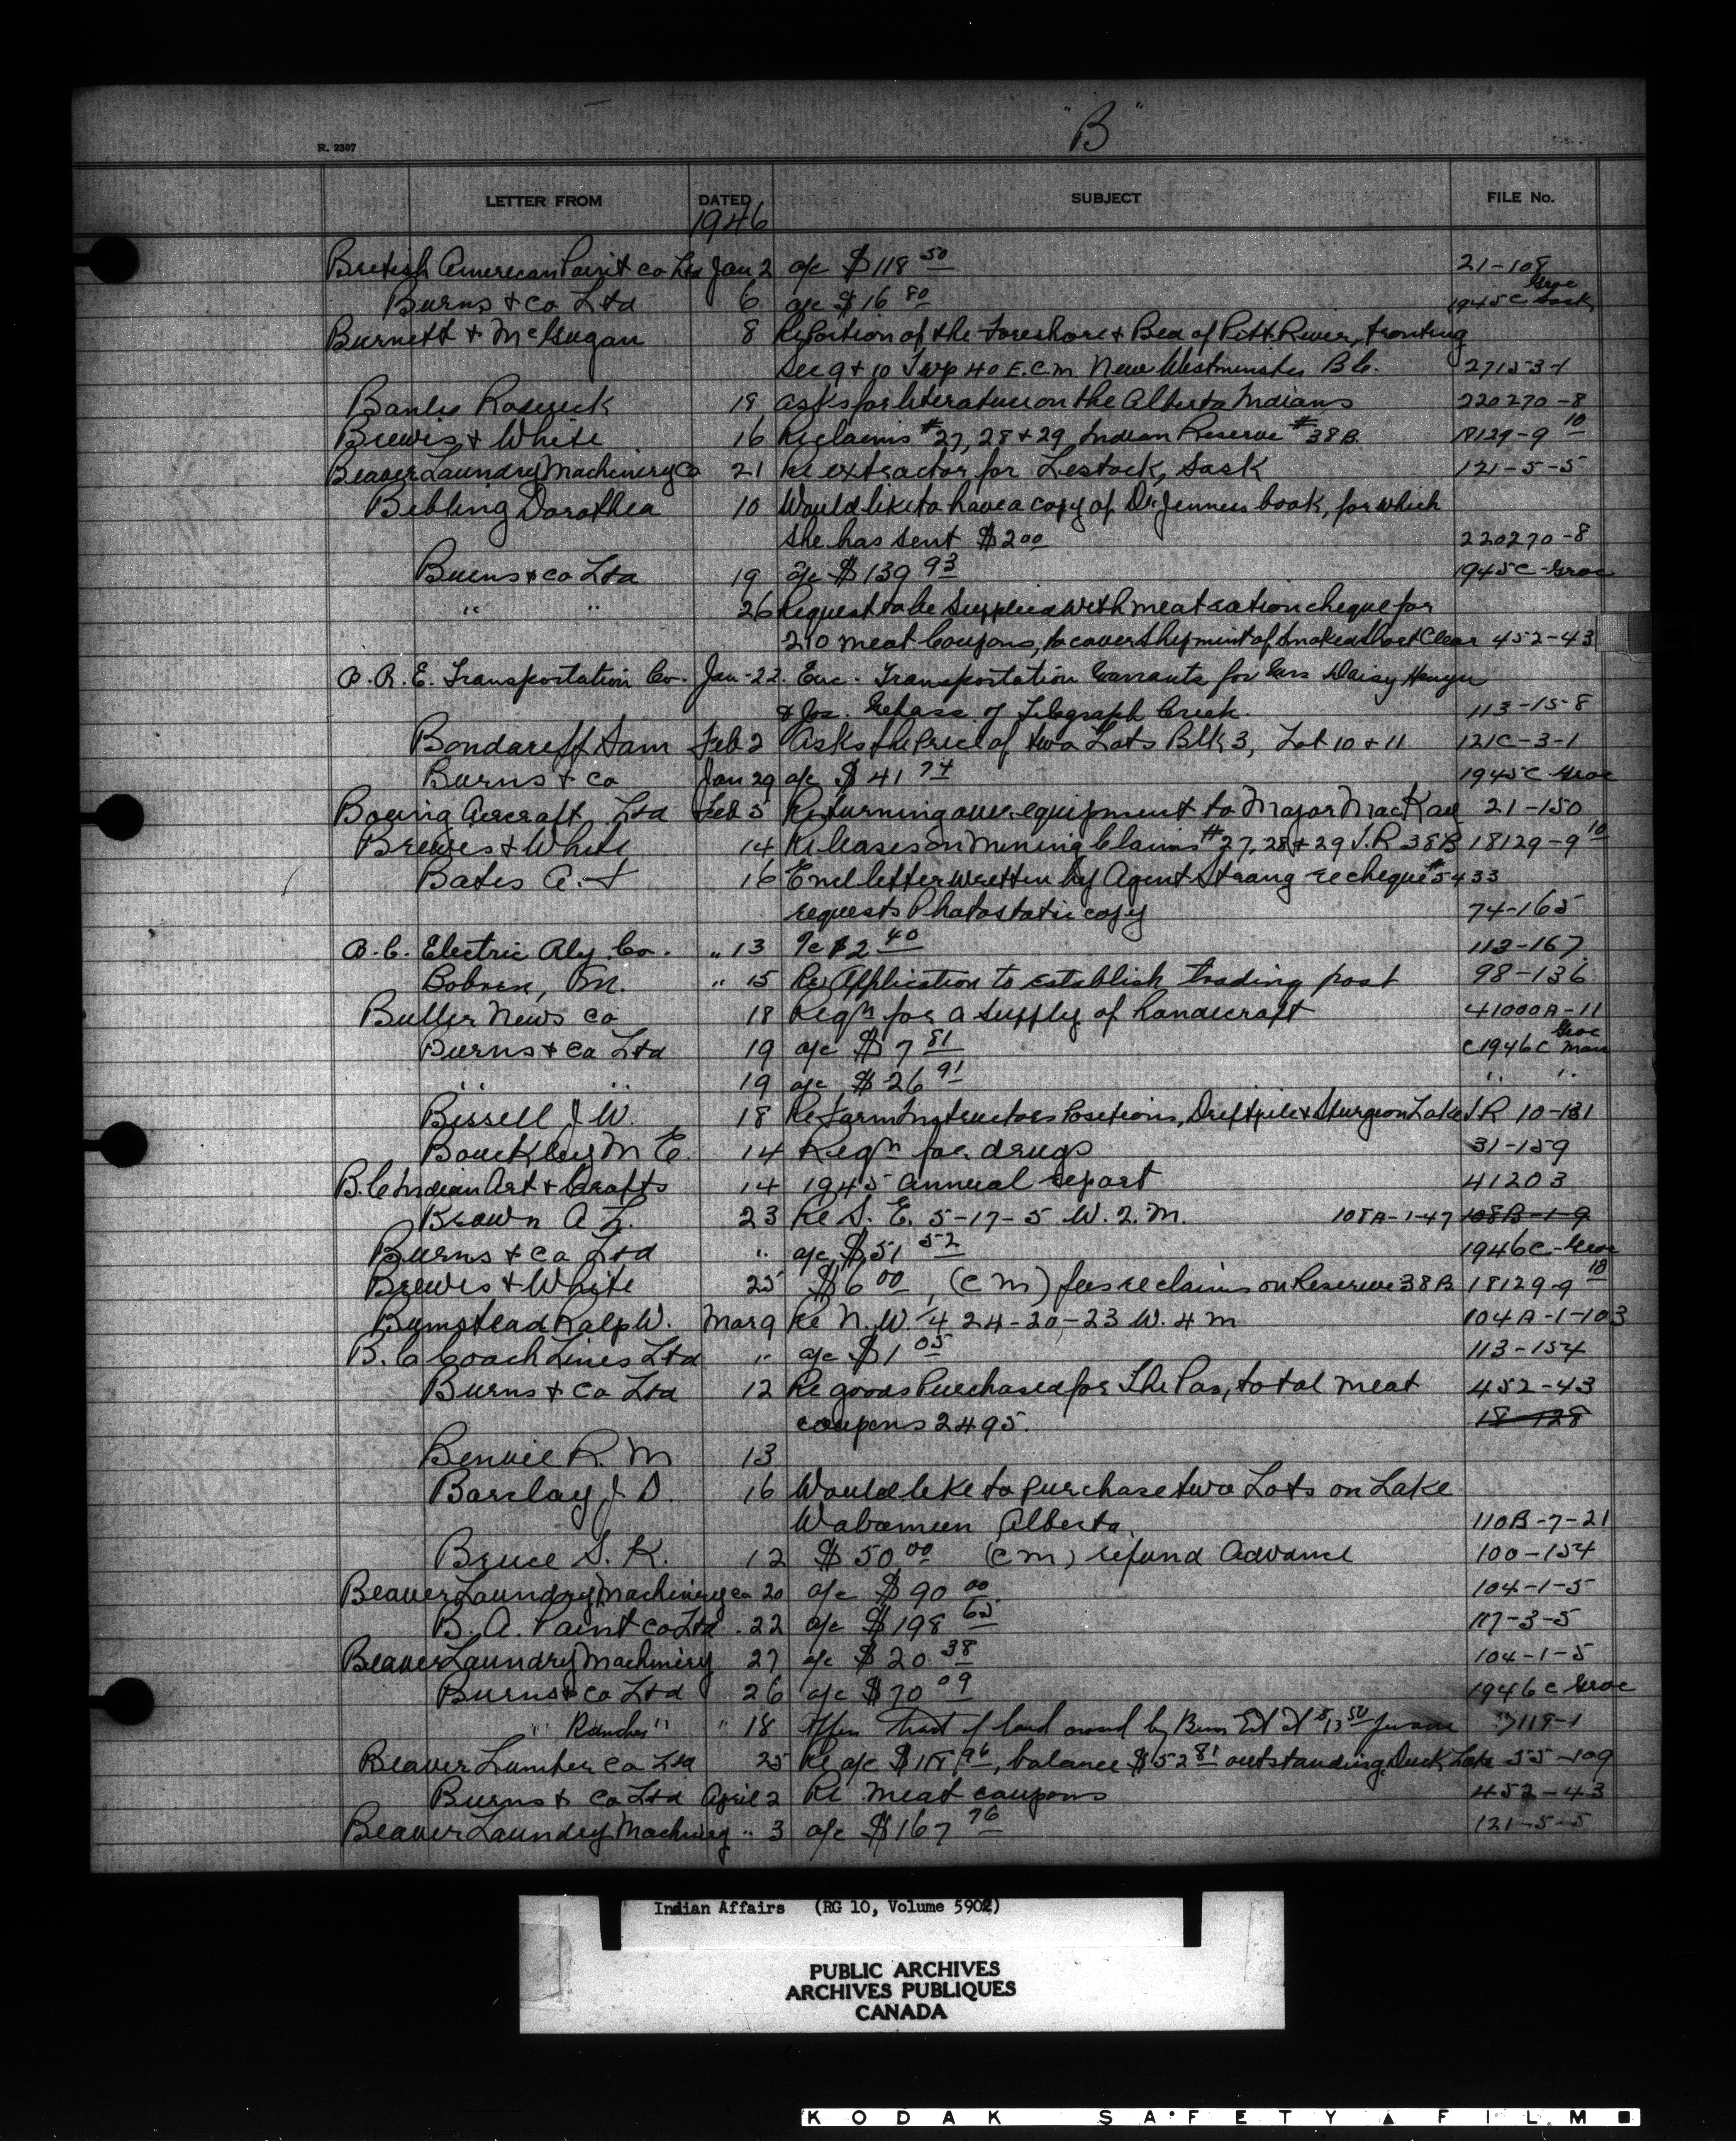 "B"
R. 2307
LETTER FROM DATED SUBJECT FILE No.
1946
British American Paint co Ltd Jan 2 a/c $118 50 21-108
Burns & Co Ltd 6 a/c $16 80 1945C Groc Sask
Burnett & McGugan 8 Re Portion of the Foreshore & Bed of Pitt River, fronting
Sec 9 & 10 Twp 40 E.C.M. New Westminster B.C. 27153-1
Roderick 18 asks for literature on the Alberta Indians 220270-8
Brewis & White 16 Re claims #27, 28 & 29 Indian Reserve #38B. 18129-9 10
Beaver Laundry Machinery Co 21 Re extractor for Lestock, Sask 121-5-5
Bebling Dorothea 10 Would like to have a copy of Dr. Jenness book, for which
she has sent $2 00 220270-8
Burns & Co Ltd 19 a/c $139 93 1945C-Groc
" " 26 Request to be supplied with meat ration cheque for
210 meat Coupons, to cover shipment of Smoked Short Clear 452-43
B.R.E. Transportation Co. Jan-22. Enc. Transportation Warrants for Mrs Daisy
& Jos. of Telegraph Creek. 113-15-8
Bondareff Sam Feb 2 Asks the Price of two Lots Blk 3, Lot 10 & 11 121C-3-1
Burns & Co Jan 29 a/c $41 74 1945C Groc
Boeing Aircraft Ltd Feb 5 Re turning over equipment to Major MacKay 21-150
Brewis & White 14 Re leases on Mining Claims #27, 28 & 29 I.R 38B 18129-9 10
Bates A. T 16 Encl letter written by Agent Strang re cheque #5433
requests Photostatic copy 74-165
B.C. Electric Rly. Co. " 13 a/c $2 40 113-167
M. " 15 Re Application to establish trading post 98-136
Butler News Co 18 Reqn for a supply of handicraft 41000A-11
Burns & Co Ltd 19 a/c $7 81 C1946C Groc Man
" " 19 a/c $26 91 " "
Bissell J W. 18 Re Farm Instructors Positions, Driftpile & Sturgeon Lake I.R 10-131
Bouckley M E. 14 Reqn for drugs 31-159
B.C Indian Art & Crafts 14 1945 annual report 41203
Brown A L. 23 Re S. E. 5-17-5 W. 2. M. 108A-1-47 108B-1-9
Burns & Co Ltd " a/c $51 52 1946C-Groc
Brewis & White 25 $6 00, (C M) fees re claims on Reserve 38B 18129-9 10
Bumstead Ralp W. Mar 9 Re N. W. 1/4 24-20-23 W. 4 M 104A-1-103
B.C Coach Lines Ltd " a/c $1 05 113-154
Burns & Co Ltd 12 Re goods Purchased for The Pas, total meat 452-43
coupons 2495. 18-128
Bennie R. M 13
Barclay J. D. 16 Would like to purchase two Lots on Lake
Wabamun Alberta. 110B-7-21
Bruce S. K. 12 $50 00 (C M) refund Advance 100-154
Beaver Laundry Machinery co 20 a/c $90 00 104-1-5
B. A. Paint Co Ltd. 22 a/c $198 65 117-3-5
Beaver Laundry Machinery 27 a/c $20 38 104-1-5
Burns & Co Ltd 26 a/c $70 09 1946C Groc
" Ranches " " 18 Offer tract of land owned by Burns Est at $13 50 per acre 37119-1
Beaver Lumber Co Ltd 25 Re a/c $ 96, balance $52 81 outstanding, Duck Lake 55-109
Burns & Co Ltd April 2 Re meat coupons 452-43
Beaver Laundry Machinery " 3 a/c $167 76 121-5-5
Indian Affairs (RG 10, Volume 5902)
PUBLIC ARCHIVES
ARCHIVES PUBLIQUES
CANADA
KODAK SAFETY FILM